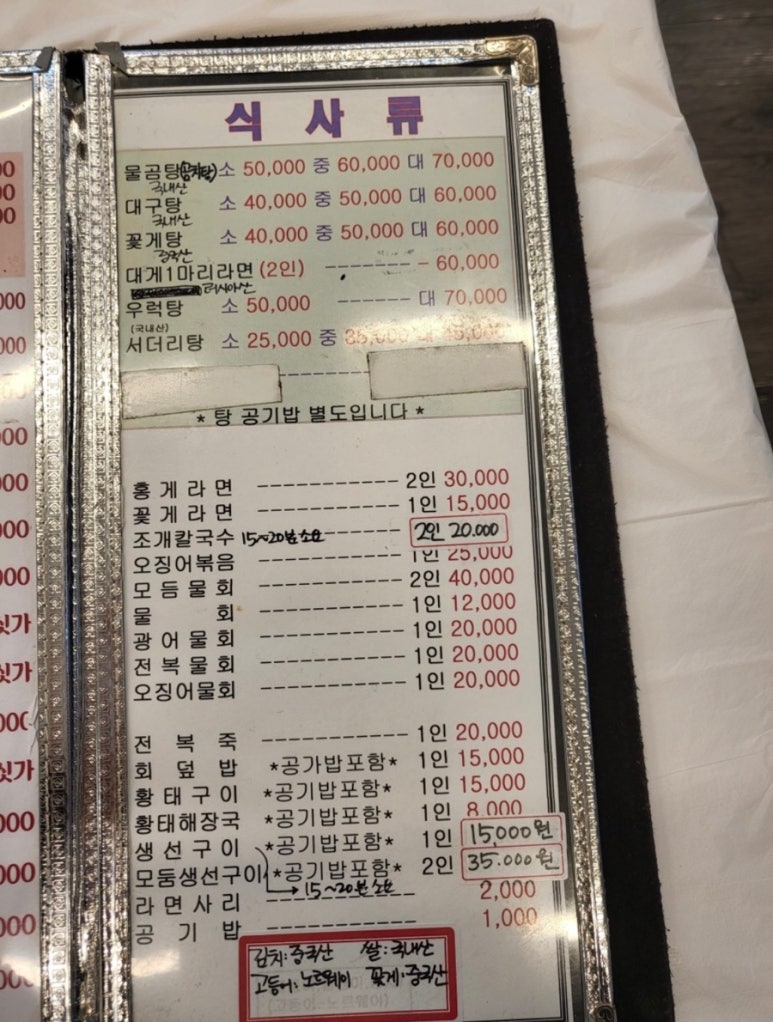 식사류
물곰탕(곰치탕) 소 50,000 중 60,000 대 70,000
국내산
대구탕 소 40,000 중 50,000 대 60,000
국내산
꽃게탕 소 40,000 중 50,000 대 60,000
중국산
대게1마리라면 (2인) - 60,000
러시아산
우럭탕 소 50,000 대 70,000
(국내산)
서더리탕 소 25,000 중
* 탕 공기밥 별도입니다 *
홍게라면 2인 30,000
꽃게라면 1인 15,000
조개칼국수 15~20분소요 2인 20.000
오징어볶음 1인 25,000
모듬물회 2인 40,000
물회 1인 12,000
광어물회 1인 20,000
전복물회 1인 20,000
오징어물회 1인 20,000
전복죽 1인 20,000
회덮밥 *공가밥포함* 1인 15,000
황태구이 *공기밥포함* 1인 15,000
황태해장국 *공기밥포함* 1인 8,000
생선구이 *공기밥포함* 1인 15,000원
모둠생선구이 *공기밥포함* 2인 35.000원
→ 15~20분소요
라면사리 2,000
공기밥 1,000
김치:중국산 쌀:국내산
고등어:노르웨이 꽃게:중국산